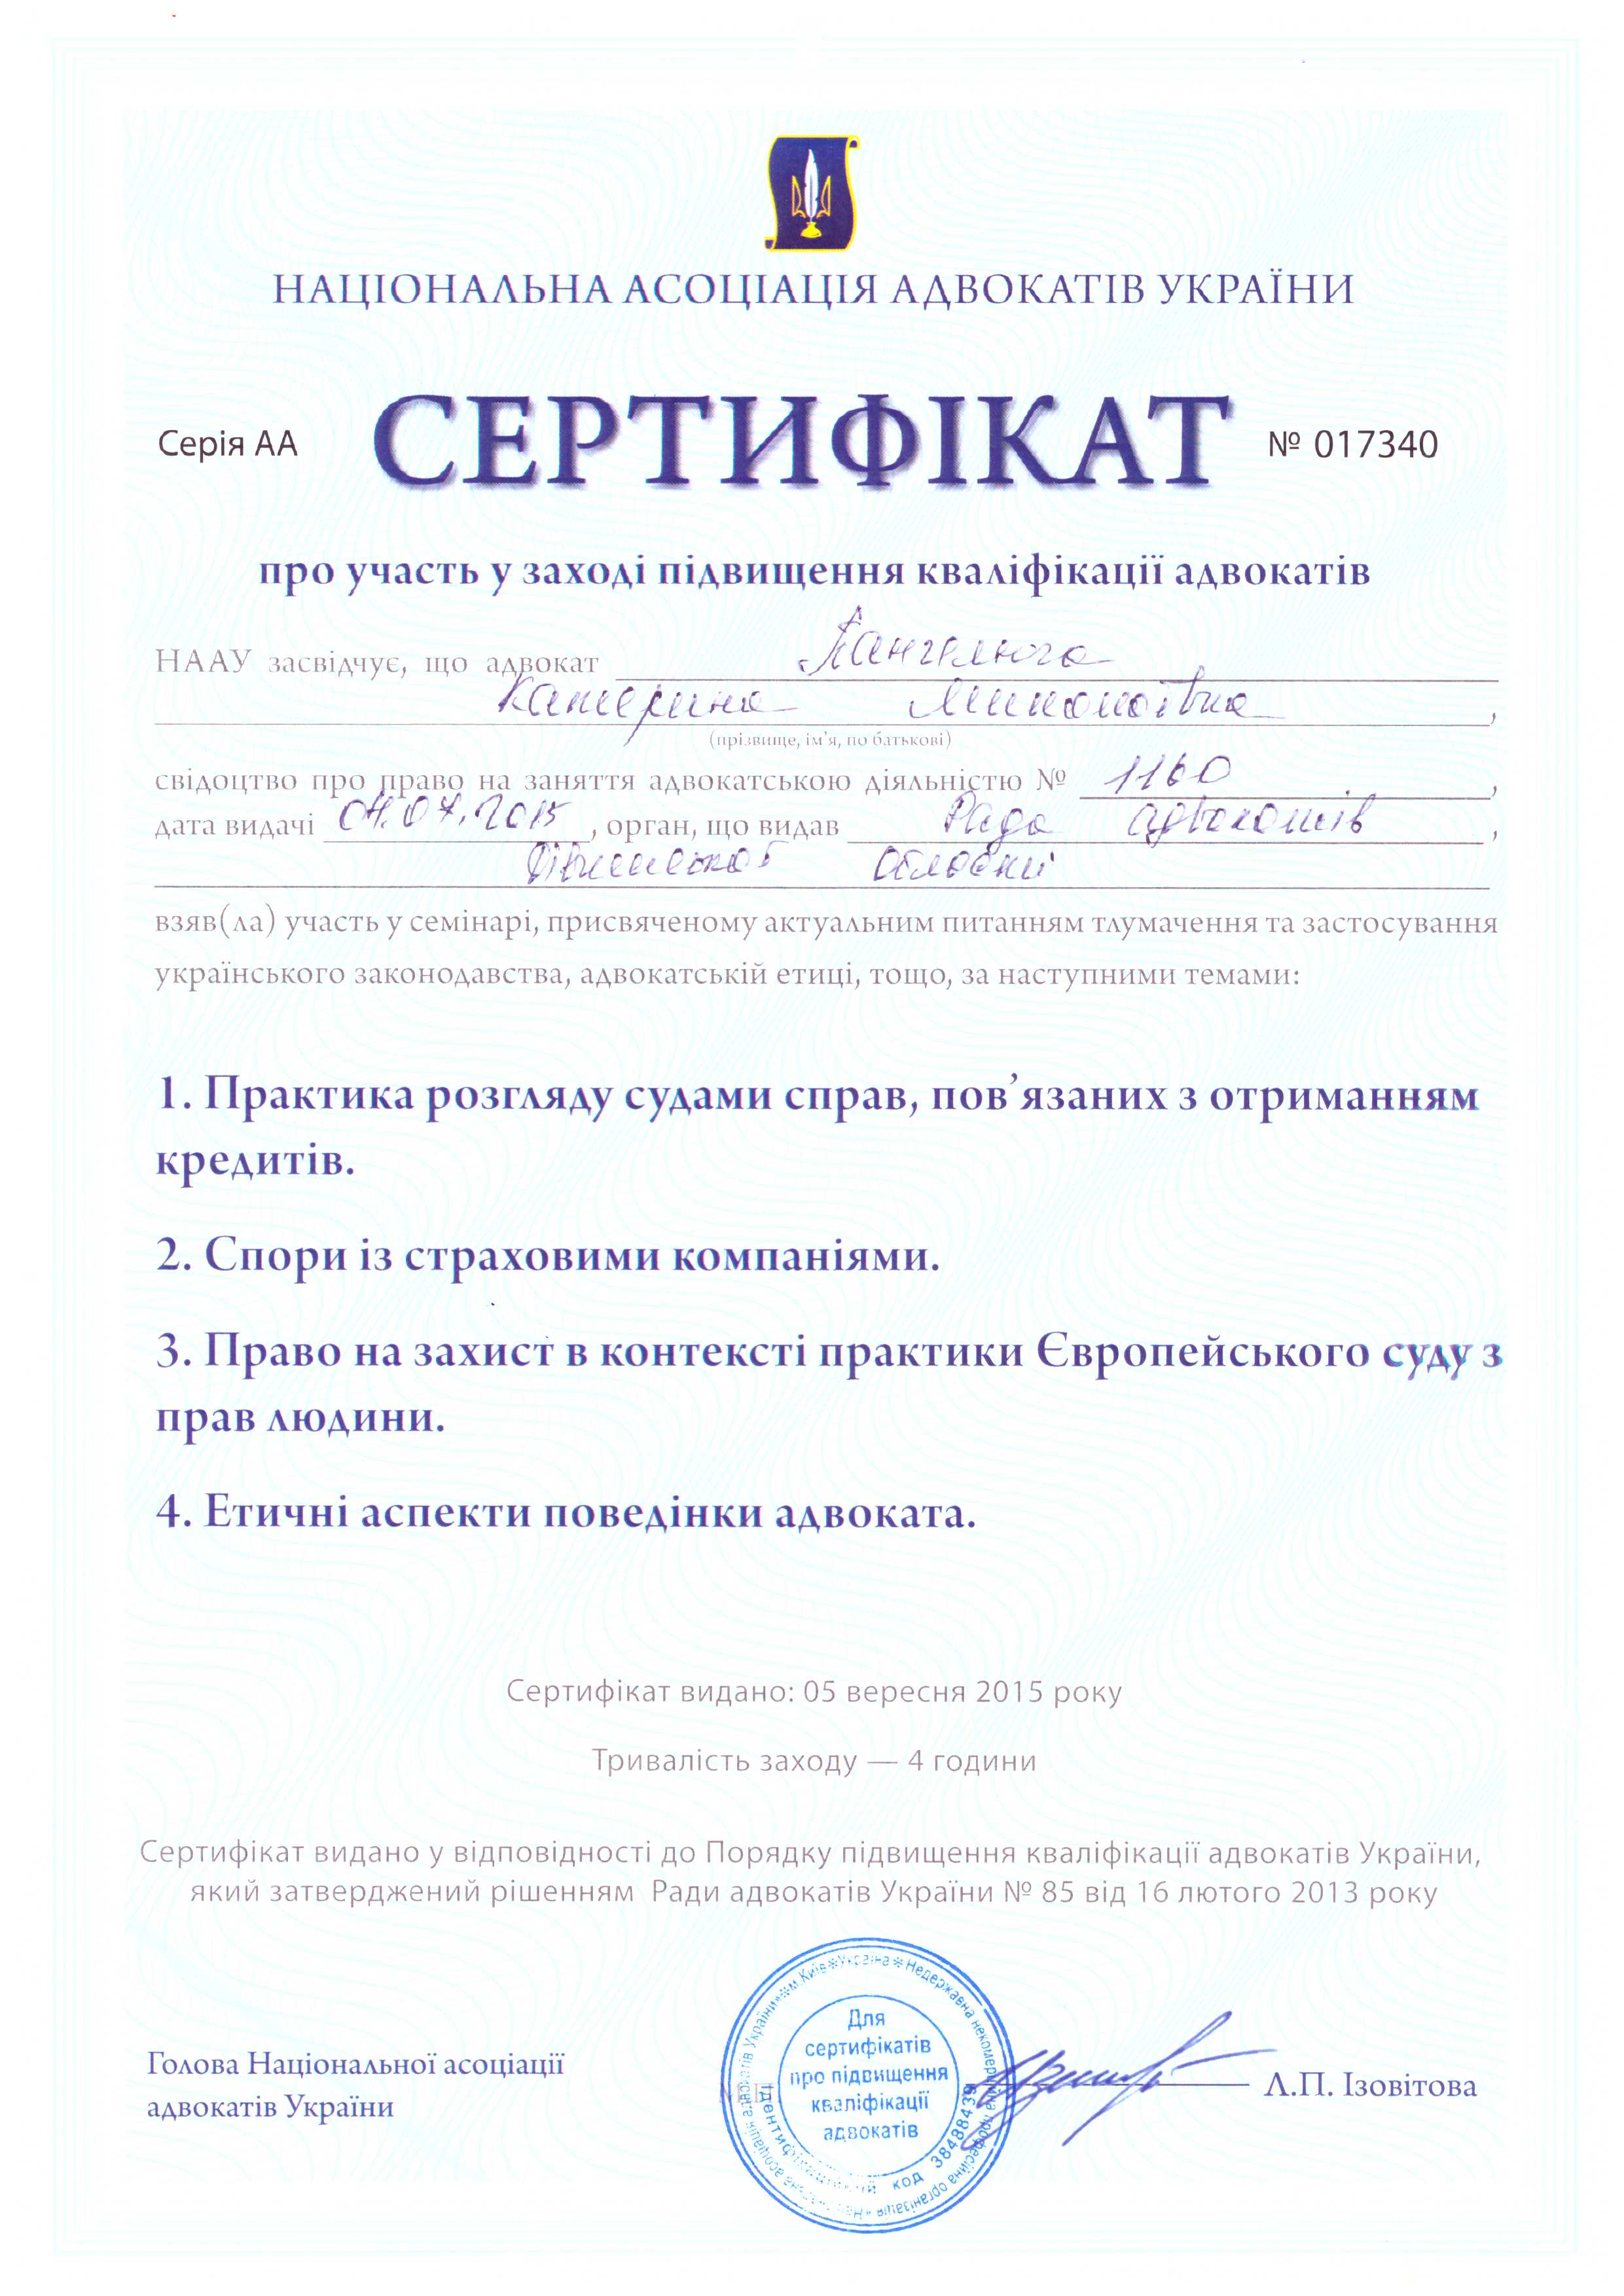 НАЦІОНАЛЬНА АСОЦІАЦІЯ АДВОКАТІВ УКРАЇНИ
Серія АА СЕРТИФІКАТ № 017340
про участь у заході підвищення кваліфікації адвокатів
НААУ засвідчує, що адвокат
Катерина Миколаївна,
(прізвище, ім'я, по батькові)
свідоцтво про право на заняття адвокатською діяльністю № 1160,
дата видачі 04.07.2015, орган, що видав Рада адвокатів,
області
взяв(ла) участь у семінарі, присвяченому актуальним питанням тлумачення та застосування
українського законодавства, адвокатській етиці, тощо, за наступними темами:
1. Практика розгляду судами справ, пов’язаних з отриманням
кредитів.
2. Спори із страховими компаніями.
3. Право на захист в контексті практики Європейського суду з
прав людини.
4. Етичні аспекти поведінки адвоката.
Сертифікат видано: 05 вересня 2015 року
Тривалість заходу — 4 години
Сертифікат видано у відповідності до Порядку підвищення кваліфікації адвокатів України,
який затверджений рішенням Ради адвокатів України № 85 від 16 лютого 2013 року
Голова Національної асоціації
адвокатів України
Для
сертифікатів
про підвищення
кваліфікації
адвокатів
Ідентифікаційний код 38488439
Л.П. Ізовітова